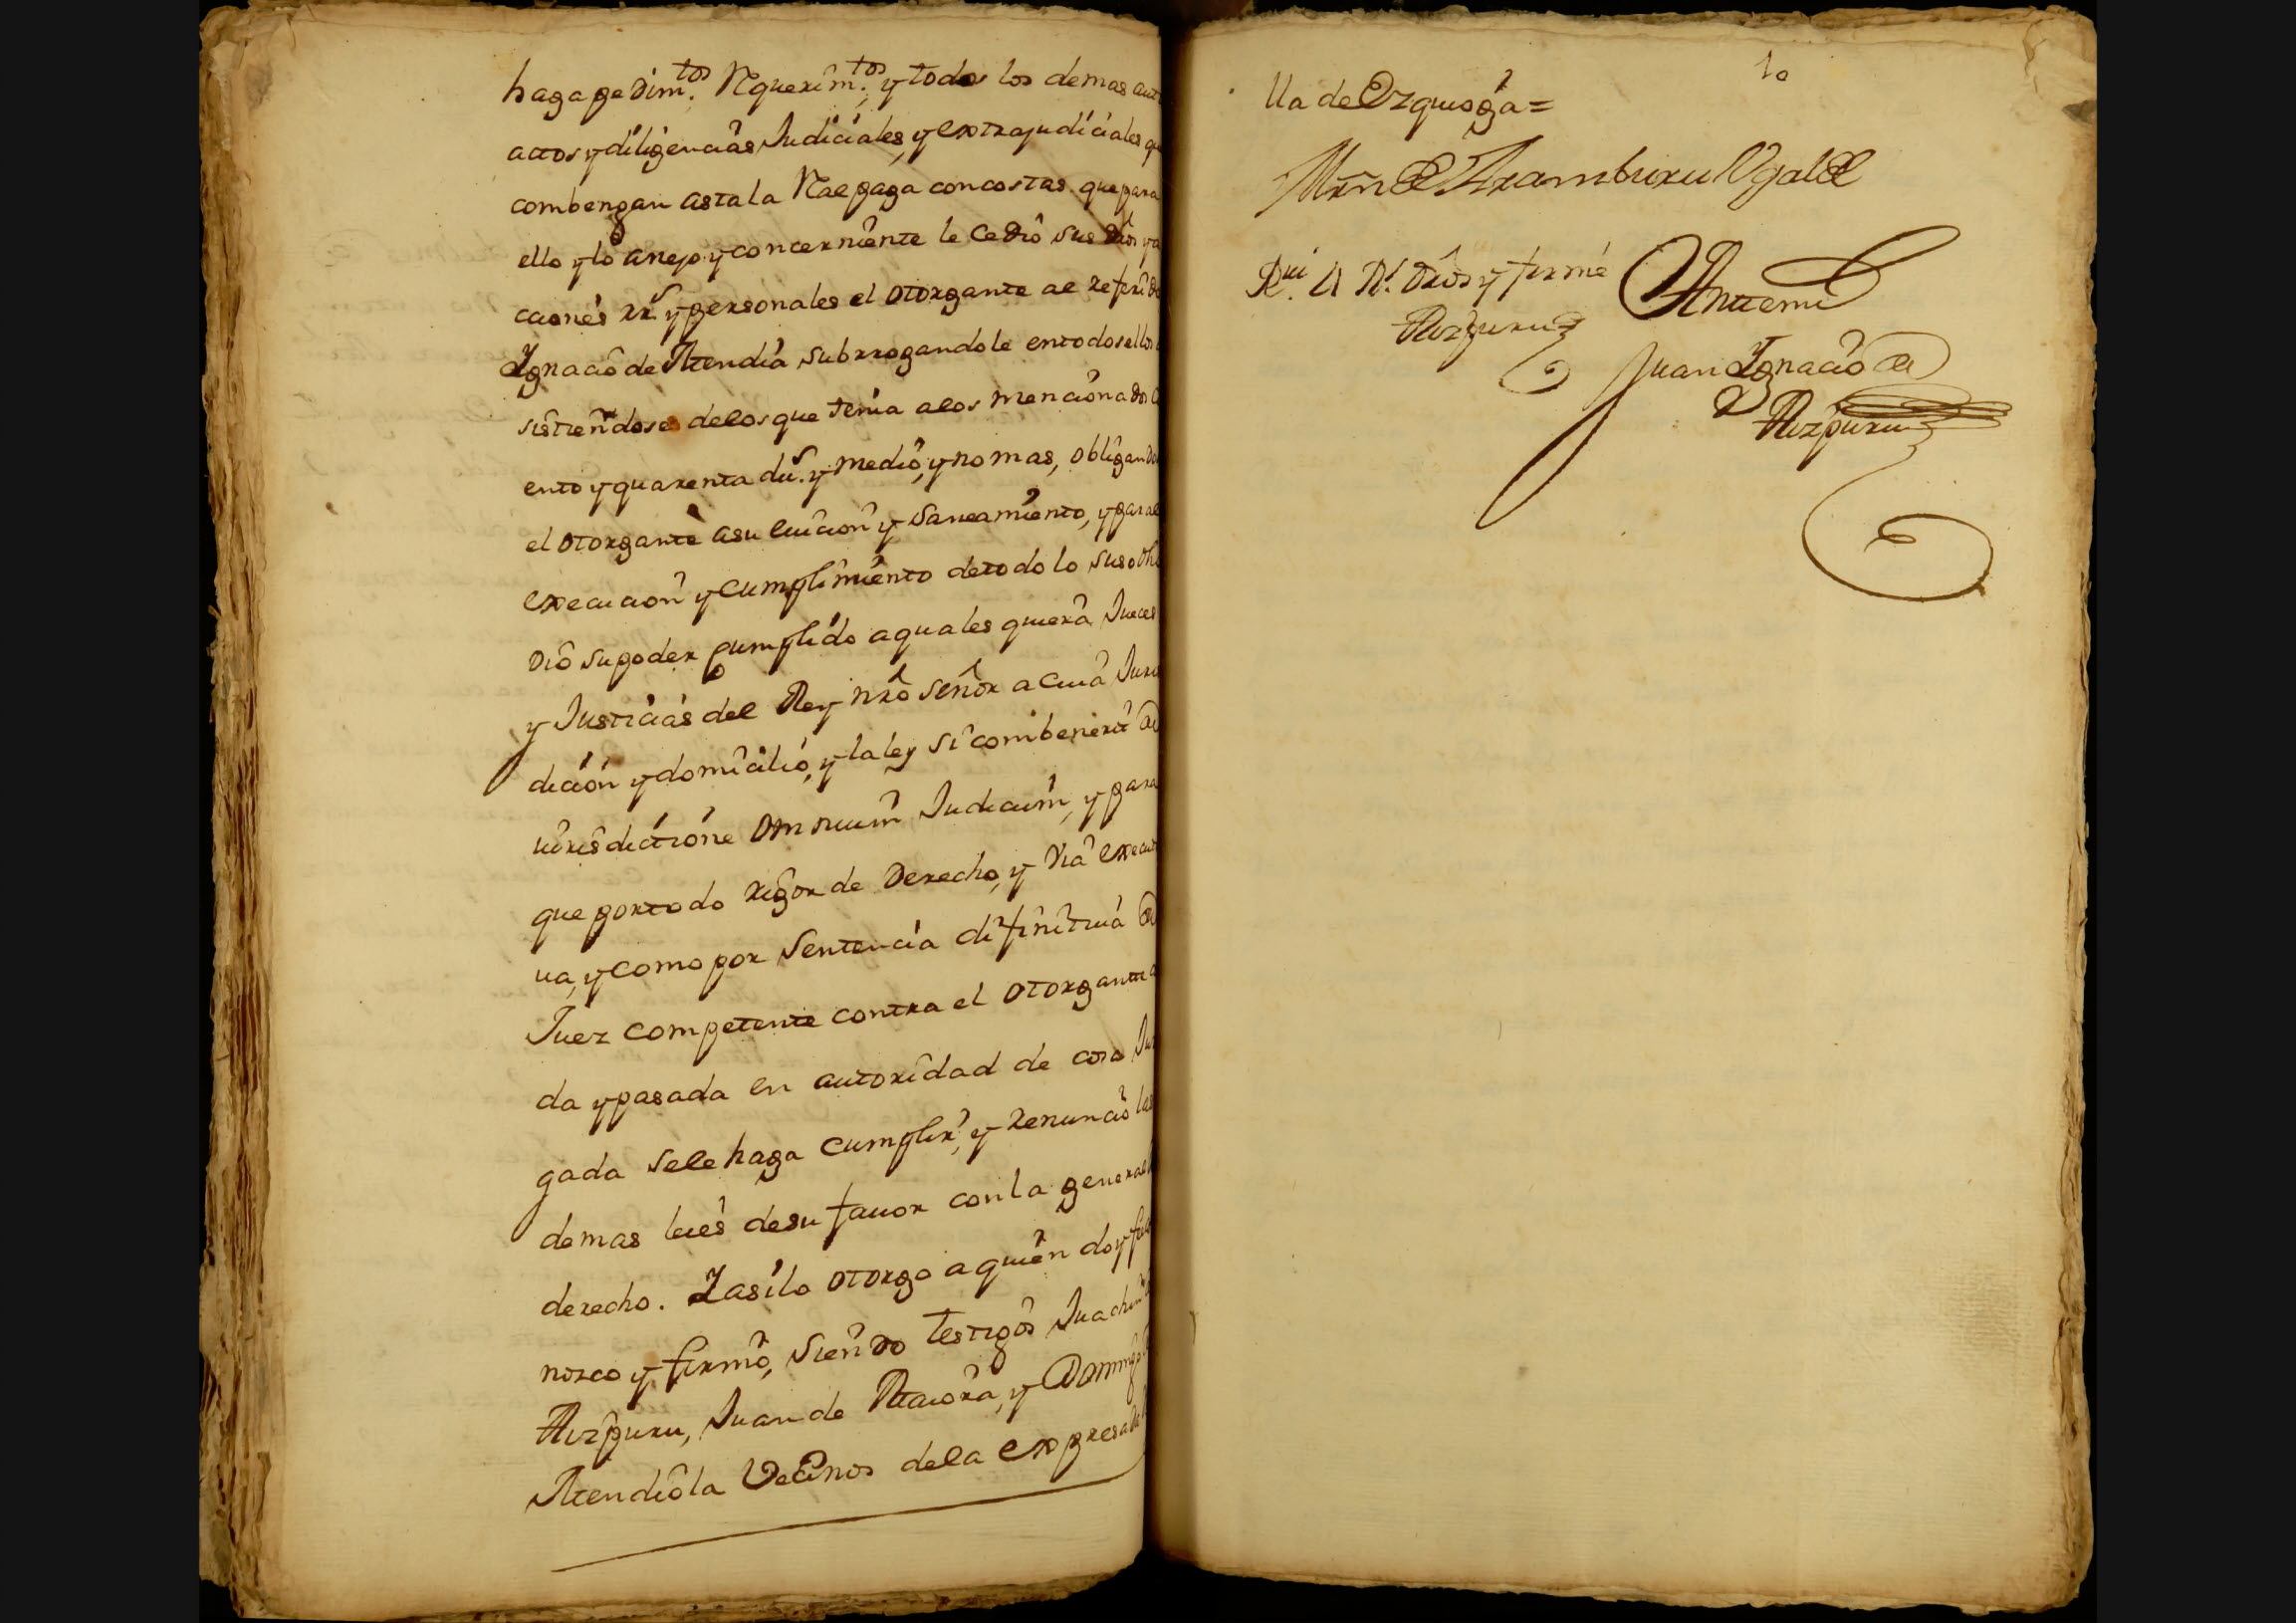 haga pedim.tos Requerim.tos, y todos los demas aut
actos y diligencias Judiciales, y extrajudiciales qu
combengan asta la Rael paga con costas que para
ello y lo anejo y concerniente le cedio sus dros y a
cciones rr.s y personales el otorgante al referido
Ignacio de Atendia, subrrogandole en todos ellos
sistiendose de los que tenia a los mencionados c
ento y quarenta du.s y medio, y no mas, obligando
el otorgante a su euicion y saneamiento, y para el
execucion y cumplimiento de todo lo suso dho
dio su poder cumplido a quales quiera Jueces
y Justicias del Rey nro señor a cuia Juris
dicion y domicilio, y la ley si combenerit de
iurisdictione omnium Judicum, y para
que por todo rigor de Derecho, y via executi
ua, y como por Sentencia difinitiua de
Juez competente contra el otorgante
da y pasada en autoridad de cosa Juz
gada se le haga cumplir, y renuncio las
demas leies de su fauor con la general
derecho. Y asi lo otorgo a quien doy fee
nozco y firmo, siendo testigos Juachin
Aizpuru, Juan de Alaiora, y Domingo
Atendiola Vecinos de la expresada
10
lla de Ezquioga =
Mrn de Aramburu Ugalde
R.ui 4 R.s dros y firmé
Aizpuru
Antemi
Juan Ignacio de
Aizpuru